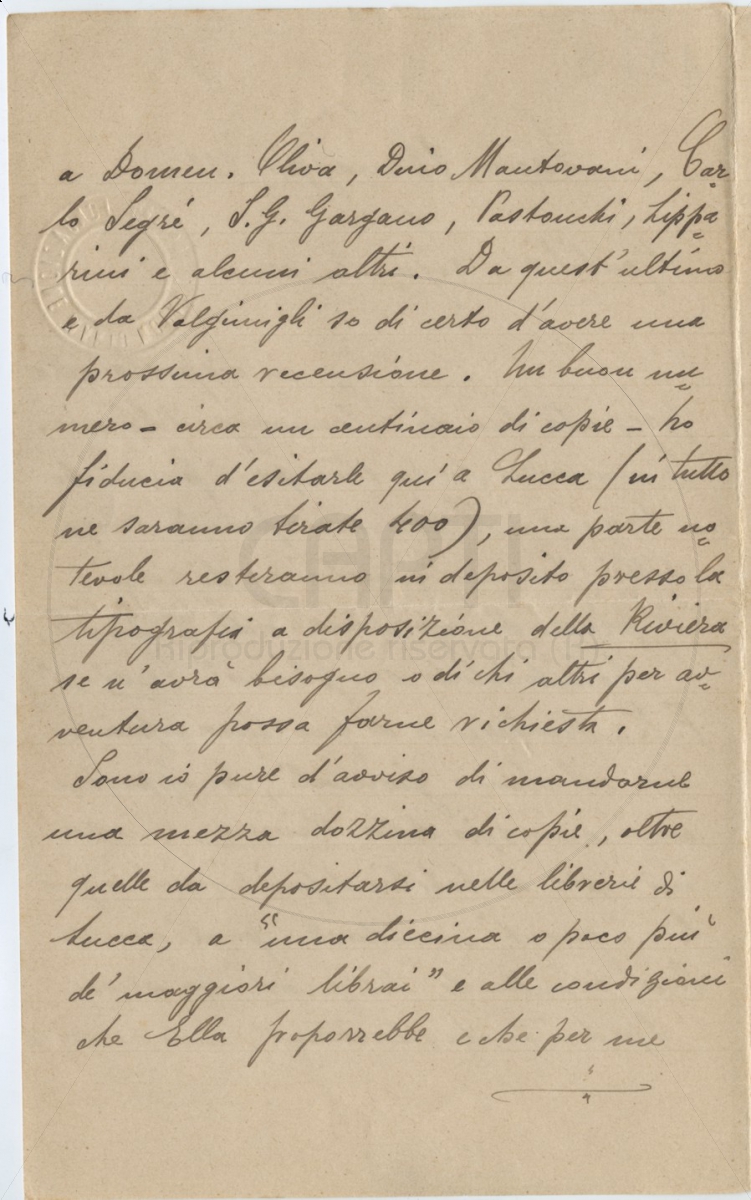 a Domen. Oliva, Dino Mantovani, Car-
lo Segré, S. G. Gargano, Pastonchi, Lippa-
rini e alcuni altri. Da quest'ultimo
e da Valgimigli so di certo d'avere una
prossima recensione. Un buon nu-
mero - circa un centinaio di copie - ho
fiducia d'esitarle qui a Lucca (in tutto
ne saranno tirate 400), una parte no-
tevole resteranno in deposito presso la
tipografia a disposizione della Riviera
se n'avrà bisogno o di chi altri per av-
ventura possa farne richiesta.
Sono io pure d'avviso di mandarne
una mezza dozzina di copie, oltre
quelle da depositarsi nelle librerie di
Lucca, a "una diecina o poco più
de' maggiori librai" e alle condizioni
che Ella proporrebbe e che per me